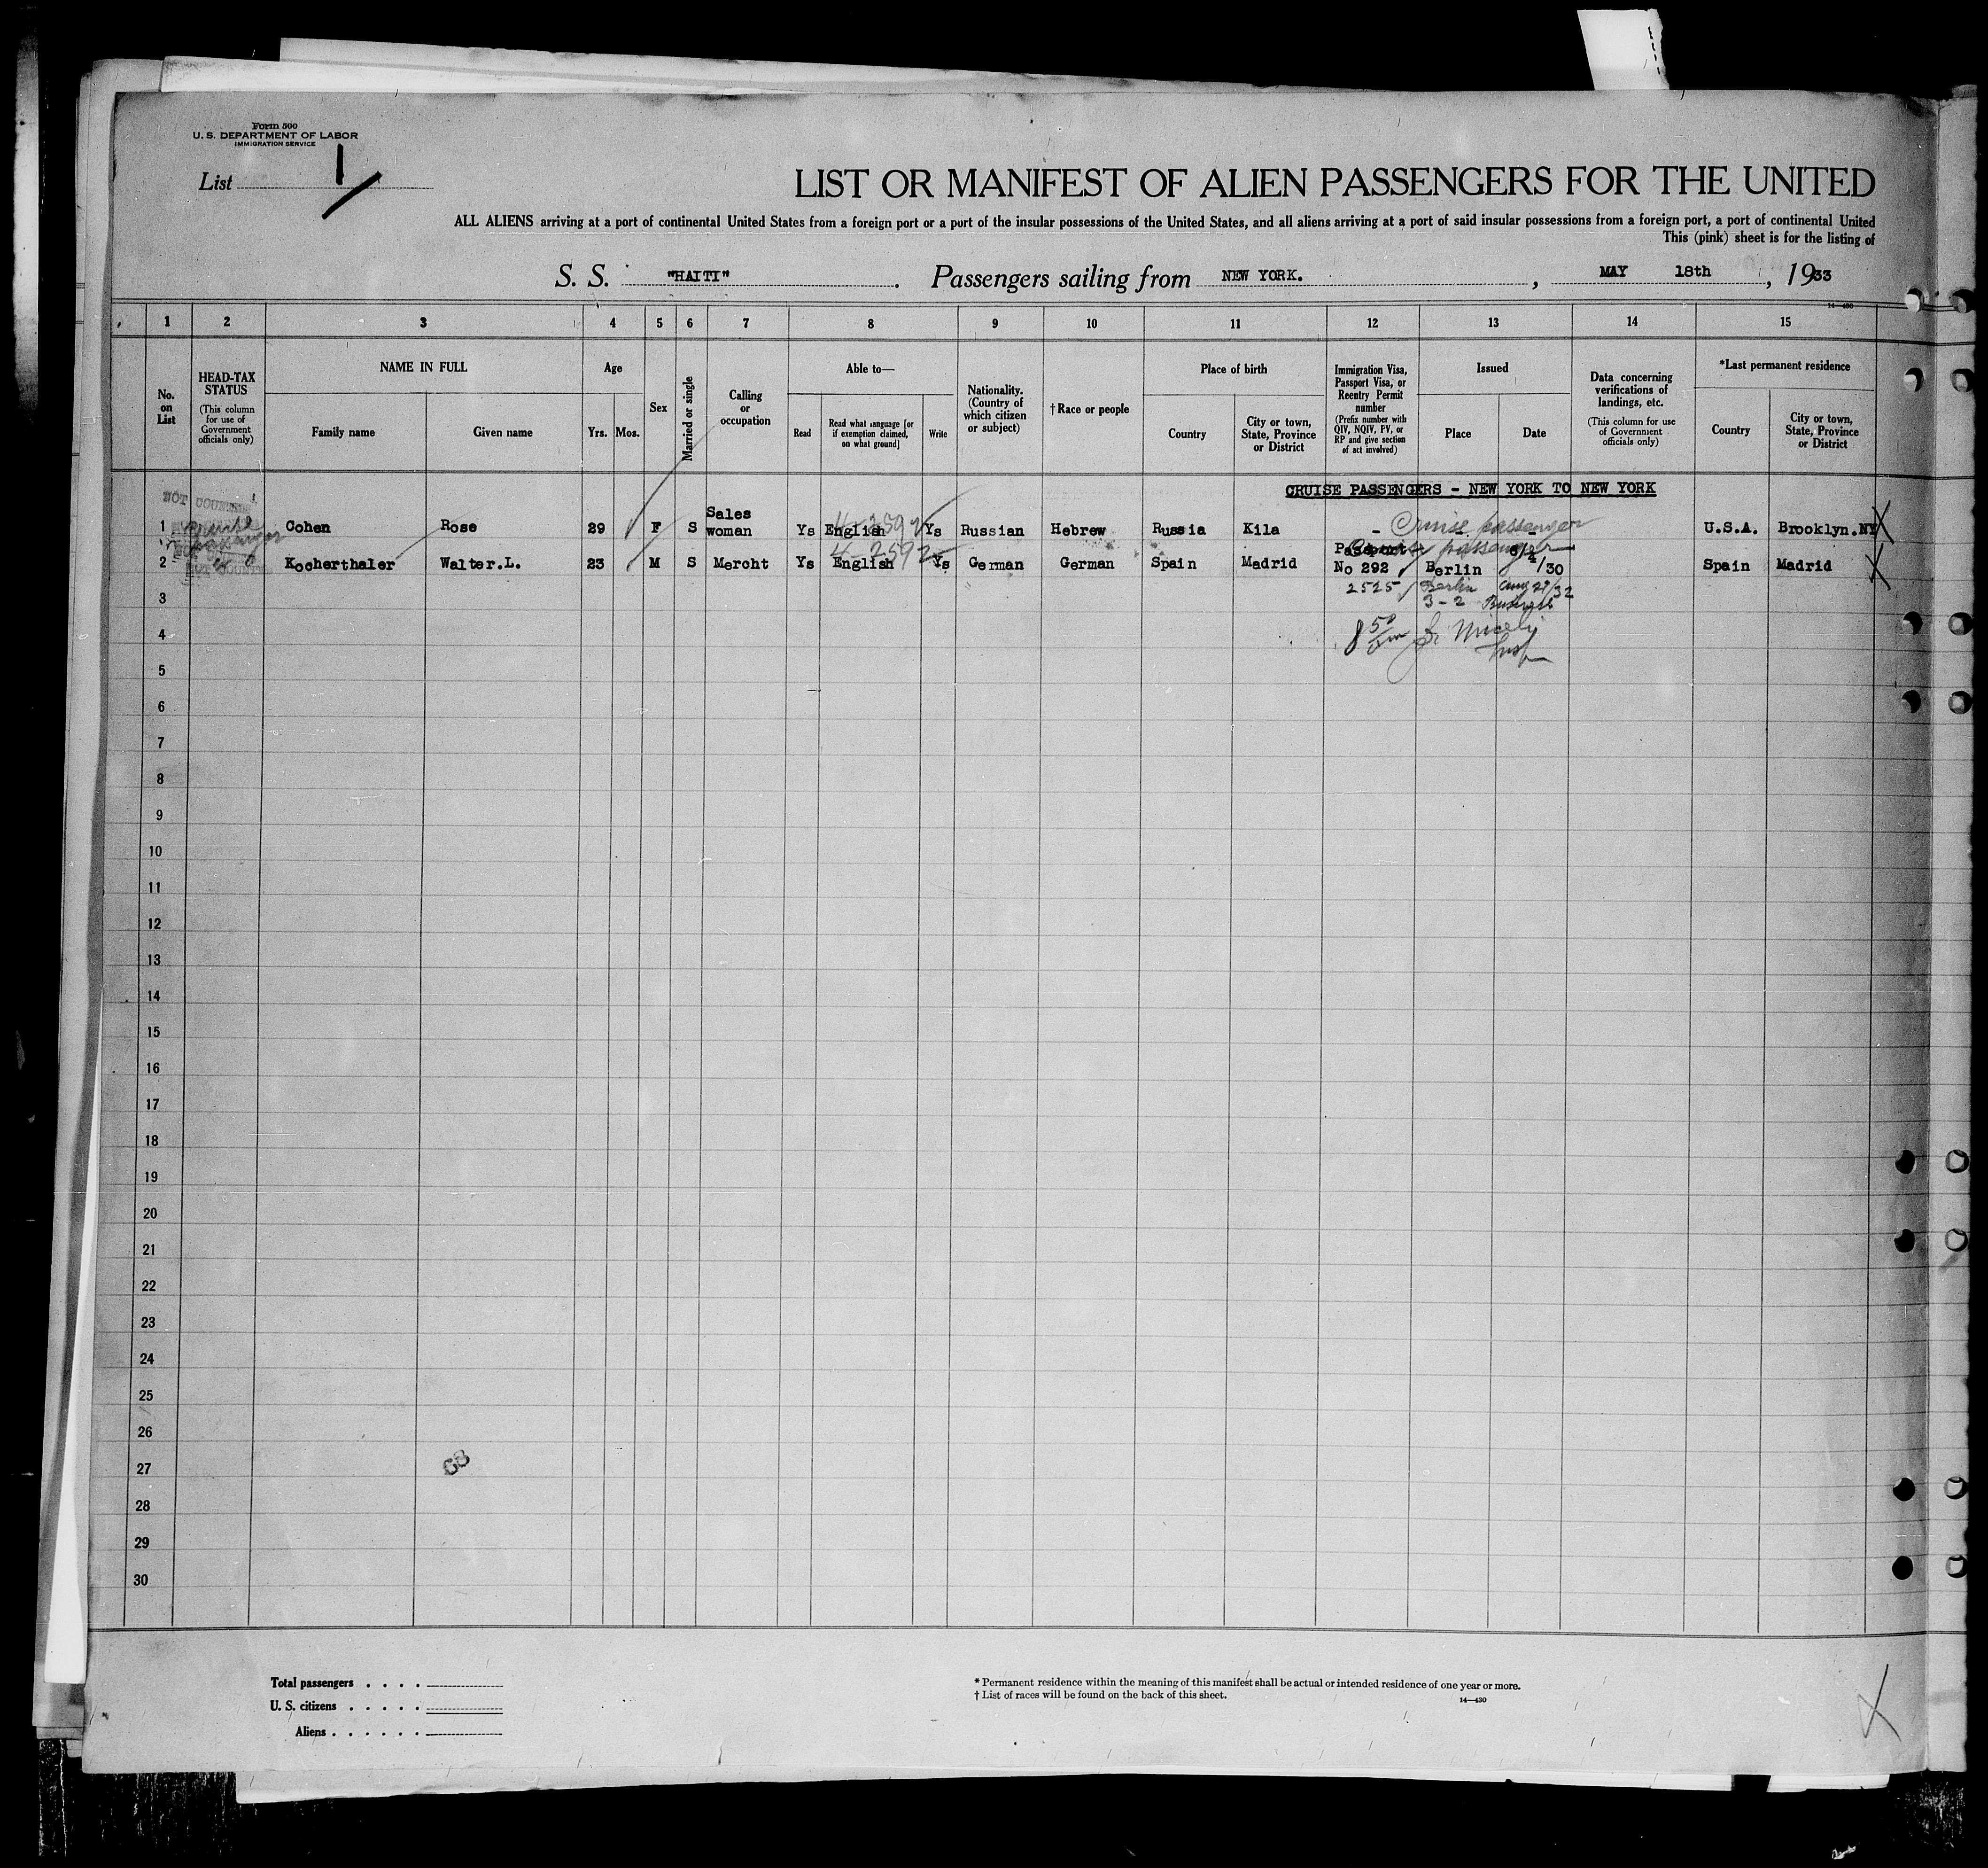 Form 500
U. S. DEPARTMENT OF LABOR
IMMIGRATION SERVICE
List 1
LIST OR MANIFEST OF ALIEN PASSENGERS FOR THE UNITED
ALL ALIENS arriving at a port of continental United States from a foreign port or a port of the insular possessions of the United States, and all aliens arriving at a port of said insular possessions from a foreign port, a port of continental United
This (pink) sheet is for the listing of
S. S. "HAITI". Passengers sailing from NEW YORK., MAY 18th, 1933
14—430
1 2 3 4 5 6 7 8 9 10 11 12 13 14 15
No. on List
HEAD-TAX STATUS
(This column for use of Government officials only)
NAME IN FULL
Family name Given name
Age
Yrs. Mos.
Sex
Married or single
Calling or occupation
Able to—
Read
Read what language [or if exemption claimed, on what ground]
Write
Nationality. (Country of which citizen or subject)
†Race or people
Place of birth
Country
City or town, State, Province or District
Immigration Visa, Passport Visa, or Reentry Permit number
(Prefix number with QIV, NQIV, PV, or RP and give section of act involved)
Issued
Place Date
Data concerning verifications of landings, etc.
(This column for use of Government officials only)
*Last permanent residence
Country
City or town, State, Province or District
CRUISE PASSENGERS - NEW YORK TO NEW YORK
NOT COUNTED
cruise passenger
4-2592
1 Cohen Rose 29 F S Sales woman Ys English Ys Russian Hebrew Russia Kila - Cruise passenger - U.S.A. Brooklyn.NY X
4-2592
Passport Cruise passenger
2 Kocherthaler Walter.L. 23 M S Mercht Ys English Ys German German Spain Madrid No 292 Berlin /30 Spain Madrid X
3 2525 / Berlin Aug 29/32
3-2 Business
4 8 50
Insp
5
6
7
8
9
10
11
12
13
14
15
16
17
18
19
20
21
22
23
24
25
26
27
28
29
30
Total passengers . . . .
U. S. citizens . . . . .
Aliens . . . . . .
* Permanent residence within the meaning of this manifest shall be actual or intended residence of one year or more.
† List of races will be found on the back of this sheet.
14—430
X